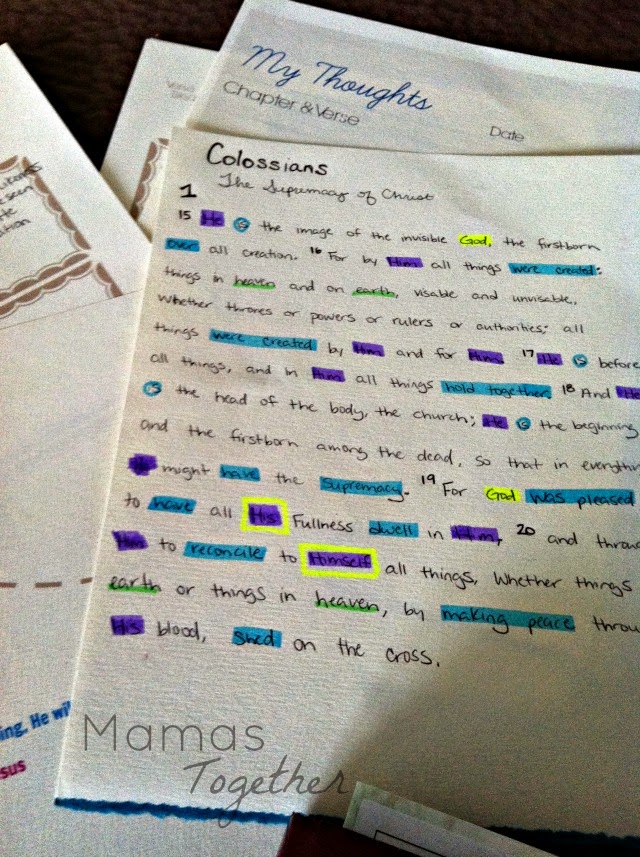 My Thoughts
Chapter & Verse
Date
Colossians
1
The Supremacy of Christ
15 He is the image of the invisible God, the firstborn
over all creation. 16 For by Him all things were created:
things in heaven and on earth, visable and unvisable,
Whether thrones or powers or rulers or authorities; all
things were created by Him and for Him. 17 He is before
all things, and in Him all things hold together. 18 And He
is the head of the body, the church; He is the beginning
and the firstborn among the dead, so that in everythin
might have the supremacy. 19 For God was pleased
to have all His Fullness dwell in Him, 20 and throu
Him to reconcile to Himself all things, Whether things
earth or things in heaven, by making peace throu
His blood, shed on the cross.
ing. He wil
sus
Mamas
Together